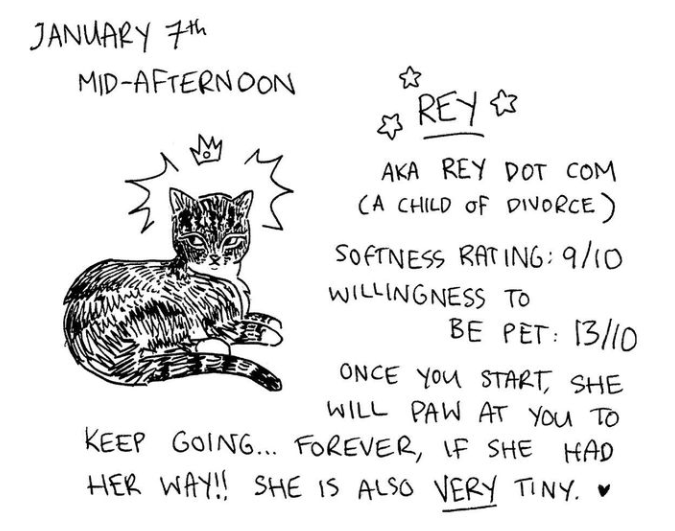 JANUARY 7th
MID-AFTERNOON
REY
AKA REY DOT COM
(A CHILD OF DIVORCE)
SOFTNESS RATING: 9/10
WILLINGNESS TO
BE PET: 13/10
ONCE YOU START, SHE
WILL PAW AT YOU TO
KEEP GOING... FOREVER, IF SHE HAD
HER WAY!! SHE IS ALSO VERY TINY. ♥